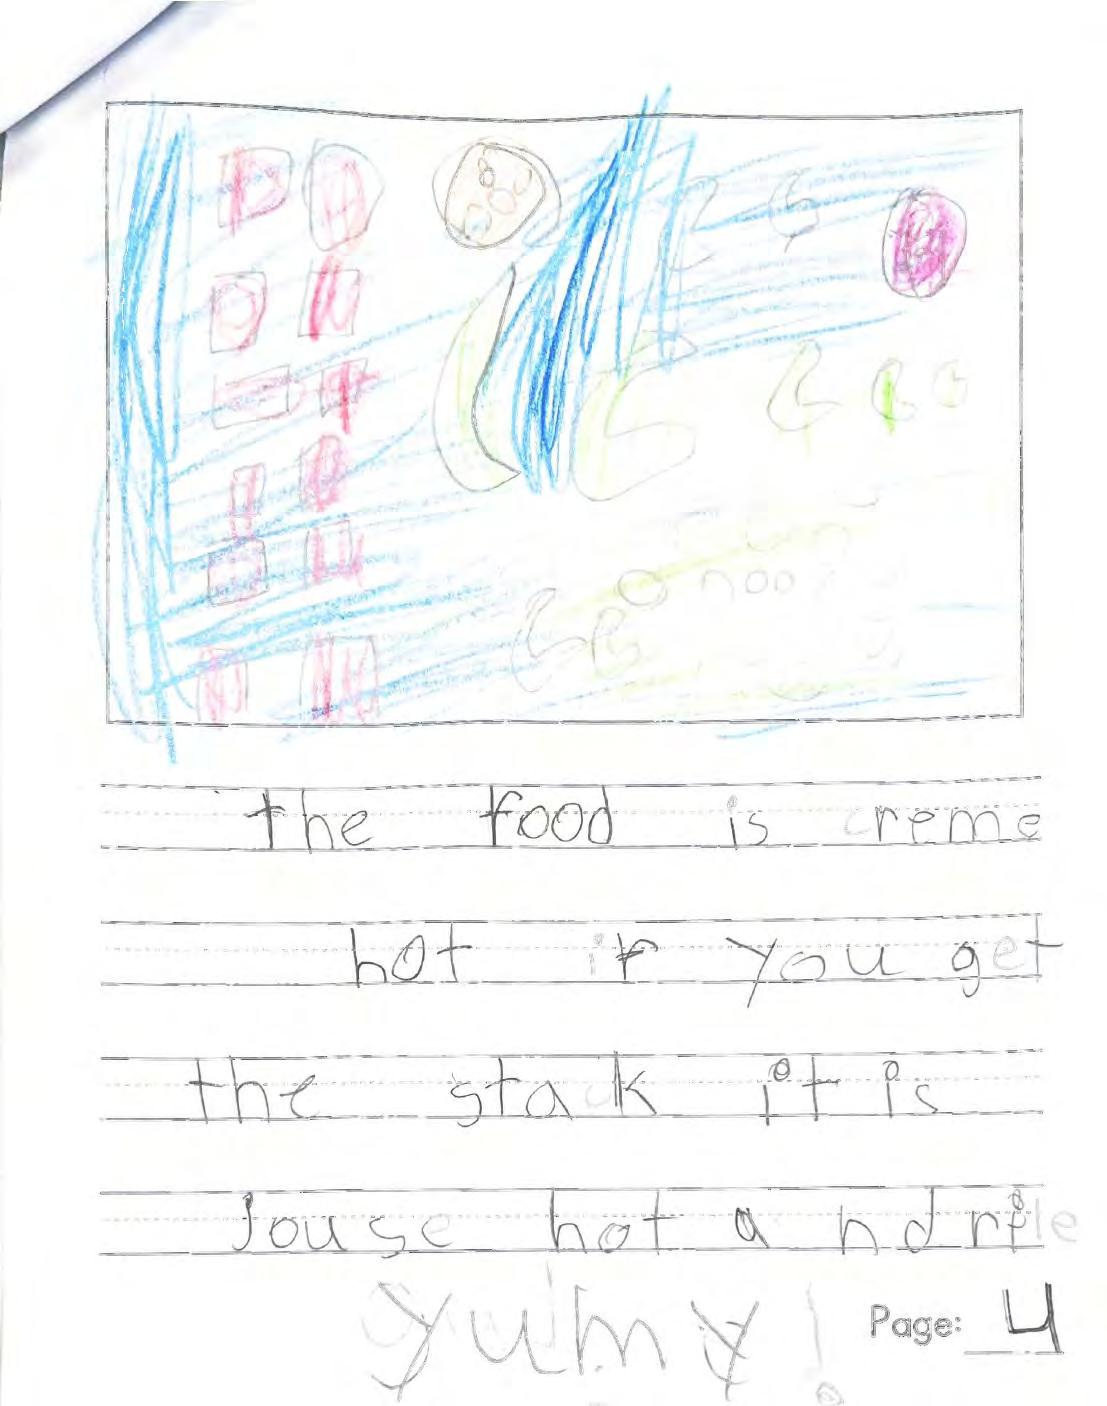 the food is creme
hot if you get
the stak it is
Jouse hot and rile
yumy!
Page: 4